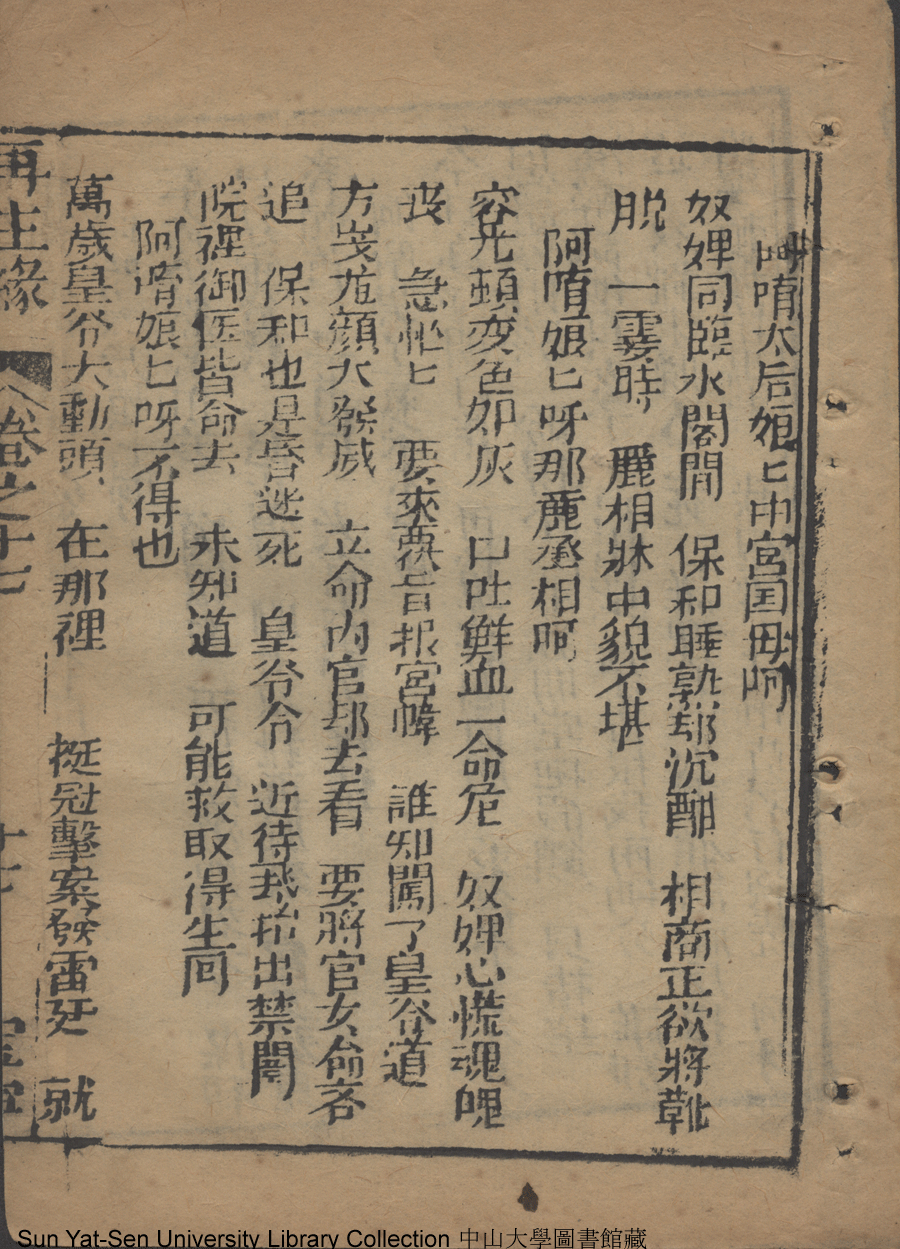 阿唷太后娘匕中宮国母呵
奴婢同臨水閣間　保和睡熟却沉酣　相商正欲將靴
脱　一霎時　麗相牀中貌不堪
阿唷娘匕呀那麗丞相呵
容光頓変色如灰　口吐鮮血一命危　奴婢心慌魂魄
丧　急忙匕　要來要旨报宮幃　誰知闖了皇爷道
方岌龙顔大發威　立命内官却去看　要將官女命吝
追　保和也是昏迷死　皇爷令　近待扛抬出禁闈
院裡御医皆命去　未知道　可能救取得生回
阿唷娘匕呀不得也
萬歳皇爷大動頭　在那裡　挺慰擊案發雷廷　就
再生緣　卷之十七　十七
Sun Yat-Sen University Library Collection 中山大學圖書館藏